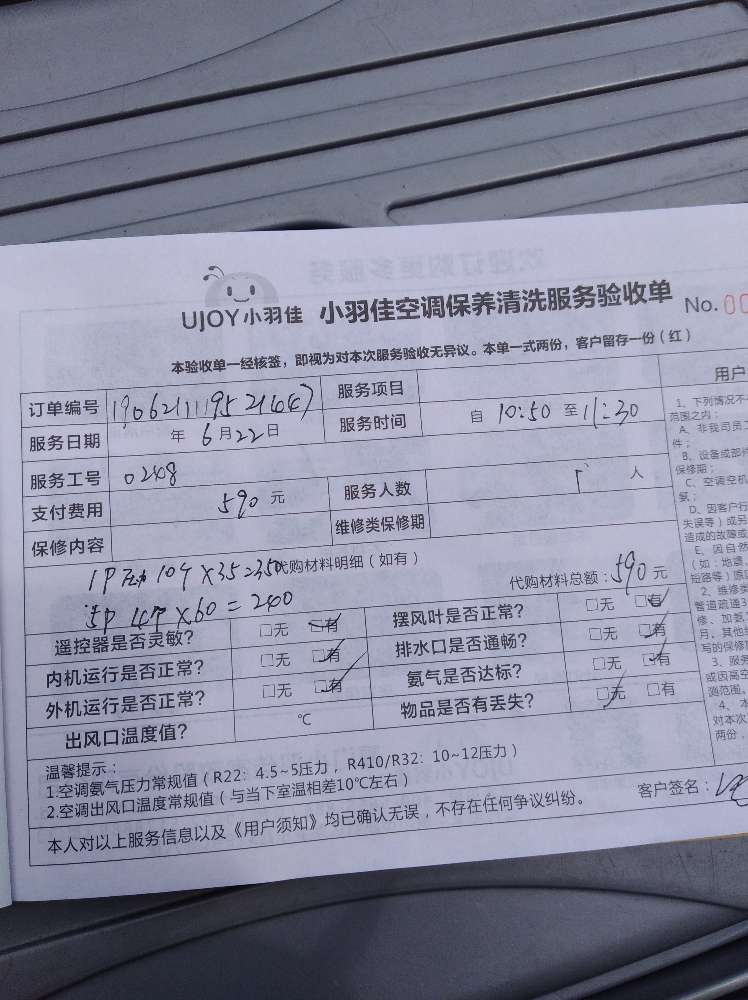 UJOY小羽佳 小羽佳空调保养清洗服务验收单 No.00
本验收单一经核签，即视为对本次服务验收无异议。本单一式两份，客户留存一份（红）
订单编号 服务项目
服务日期 年 6月22日 服务时间 自 10:50 至 11:30
服务工号 0248
支付费用 590 元 服务人数 人
保修内容 维修类保修期
代购材料明细（如有）
10个×35=350
×60=240
代购材料总额：590元
遥控器是否灵敏？ □无 □有 摆风叶是否正常？ □无 □有
内机运行是否正常？ □无 □有 排水口是否通畅？ □无 □有
外机运行是否正常？ □无 □有 氨气是否达标？ □无 □有
出风口温度值？ ℃ 物品是否有丢失？ □无 □有
温馨提示：
1.空调氨气压力常规值（R22：4.5~5压力，R410/R32：10~12压力）
2.空调出风口温度常规值（与当下室温相差10℃左右）
客户签名：
本人对以上服务信息以及《用户须知》均已确认无误，不存在任何争议纠纷。
用户
1、下列情况不
范围之内：
A、非我司员工
件；
B、设备或部件
保修期；
C、空调空机
氨；
D、因客户行
失误等）或另
造成的故障或
E、因自然
（如：地震、
短路等）原因
2、维修类
管道疏通3
修、加氨：
月、其他
写的保修
3、服务
或因高空
测范围。
4、本
对本次
两份，